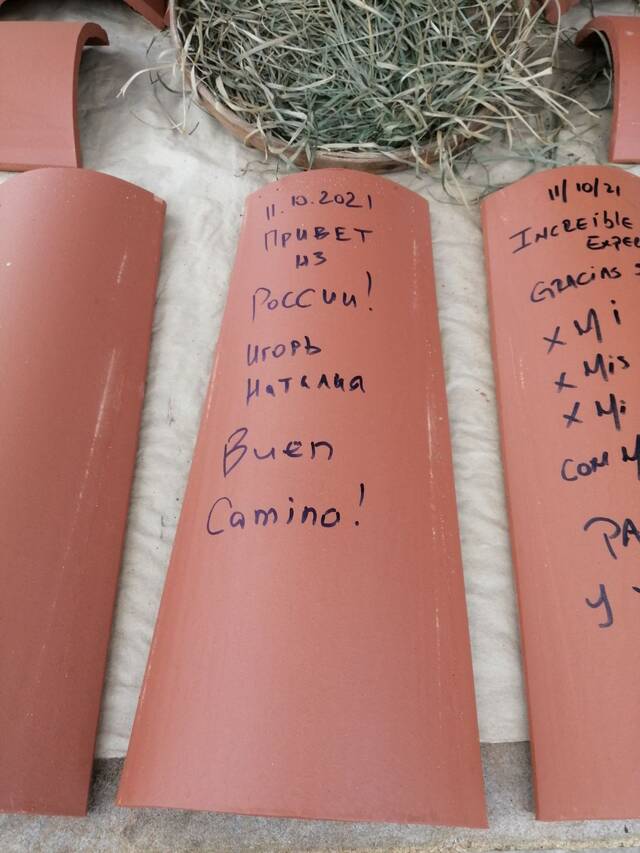 11.10.2021
ПРИВЕТ
ИЗ
РОССИИ!
Игорь
Наталия
Buen
Camino!
11/10/21
INCREÍBLE
EXPER
GRACIAS
X MI
X MIS
X MI
COM M
PA
Y